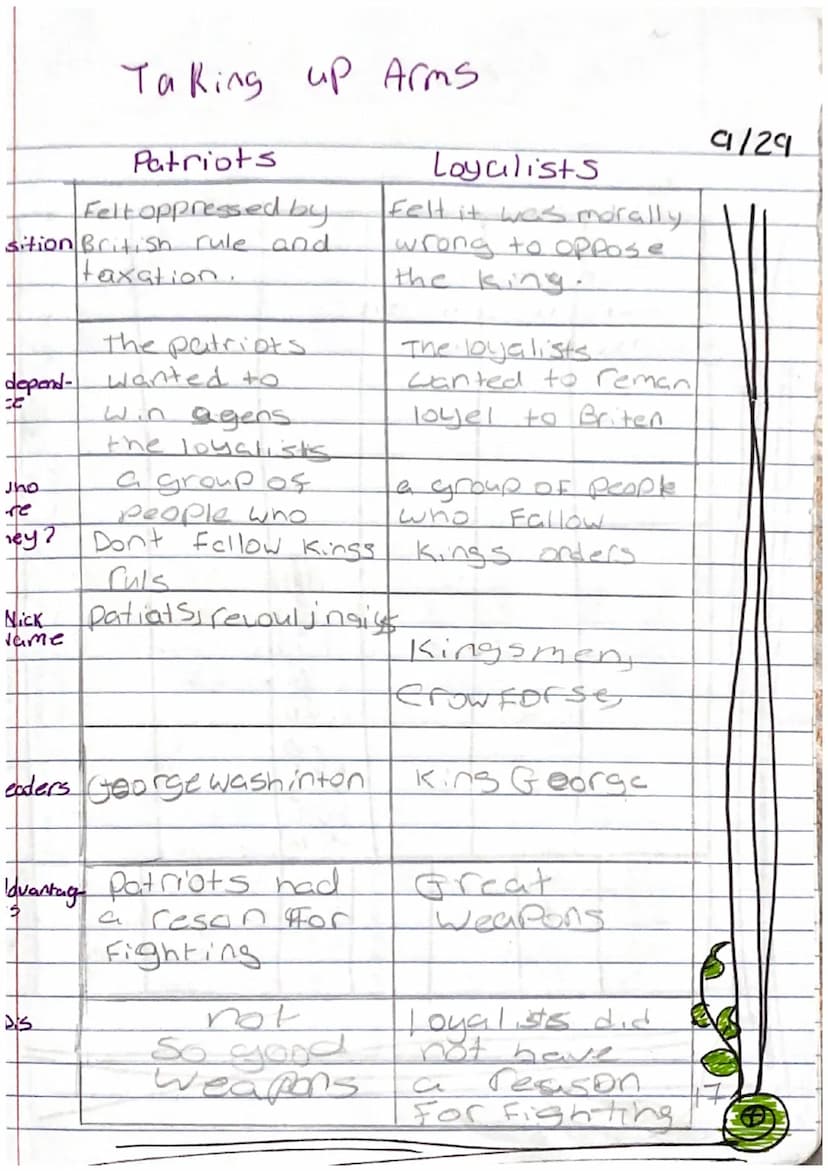 Taking up Arms
9/29
Patriots Loyalists
Felt oppressed by Felt it was morally
sition British rule and wrong to oppose
taxation. the king.
The patriots The loyalists
depend- wanted to wanted to reman
win agens loyel to Briten
the loyalists
who a group of a group of people
re people who who Fallow
hey? Dont fellow Kings Kings orders
ruls
Nick patiats,
name Kingsmen,
Crowforse,
eaders George washinton King George
dvantag patriots had Great
s a reson for weapons
Fighting
Dis not Loyalists did
so good not have
weapons a reason 17
For Fighting